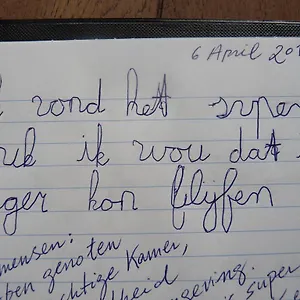 6 April 201
vond het supe
uk ik wou dat
ger kon blijfen
mensen:
ben genoten
chtige Kamer,
heid
geving.
super